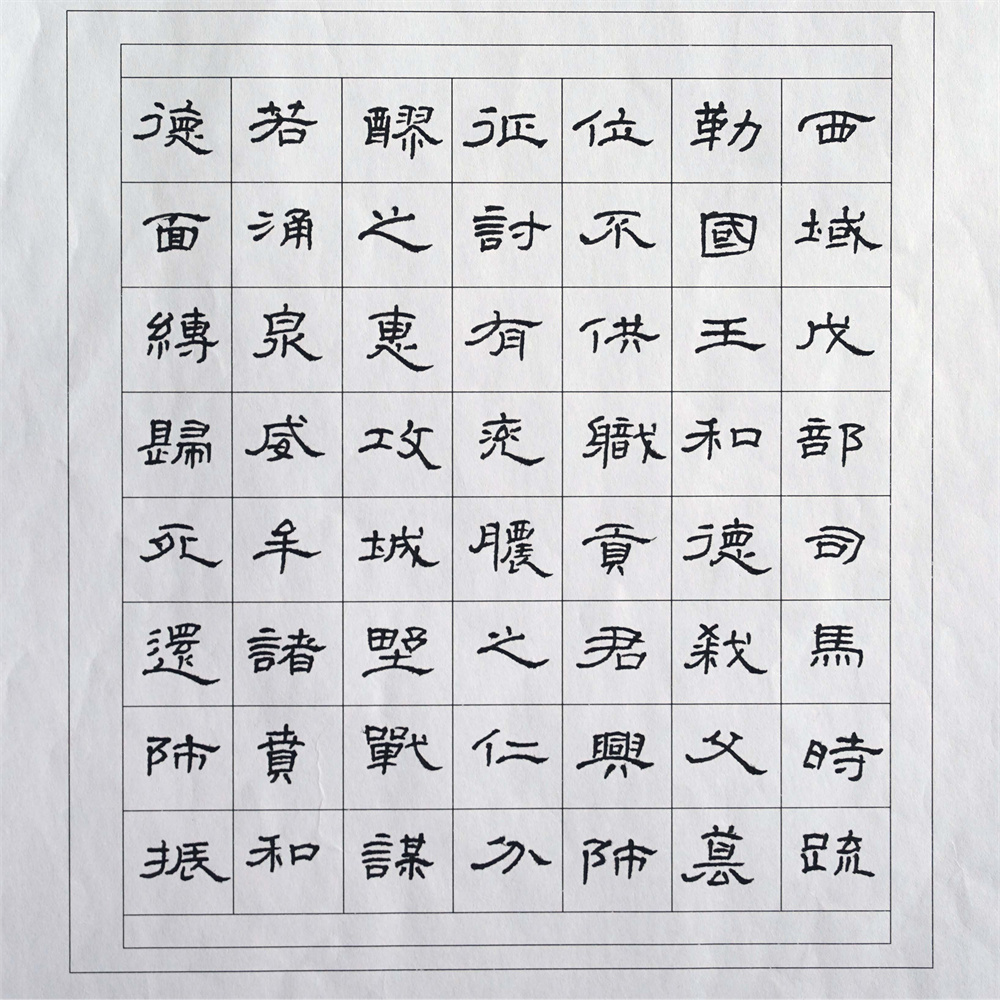 西域戊部司馬時疏
勒國王和德弒父篡
位不供職貢君興師
征討有兖膿之仁分
醪之惠攻城野戰謀
若涌泉威牟諸賁和
德面縛歸死還師振